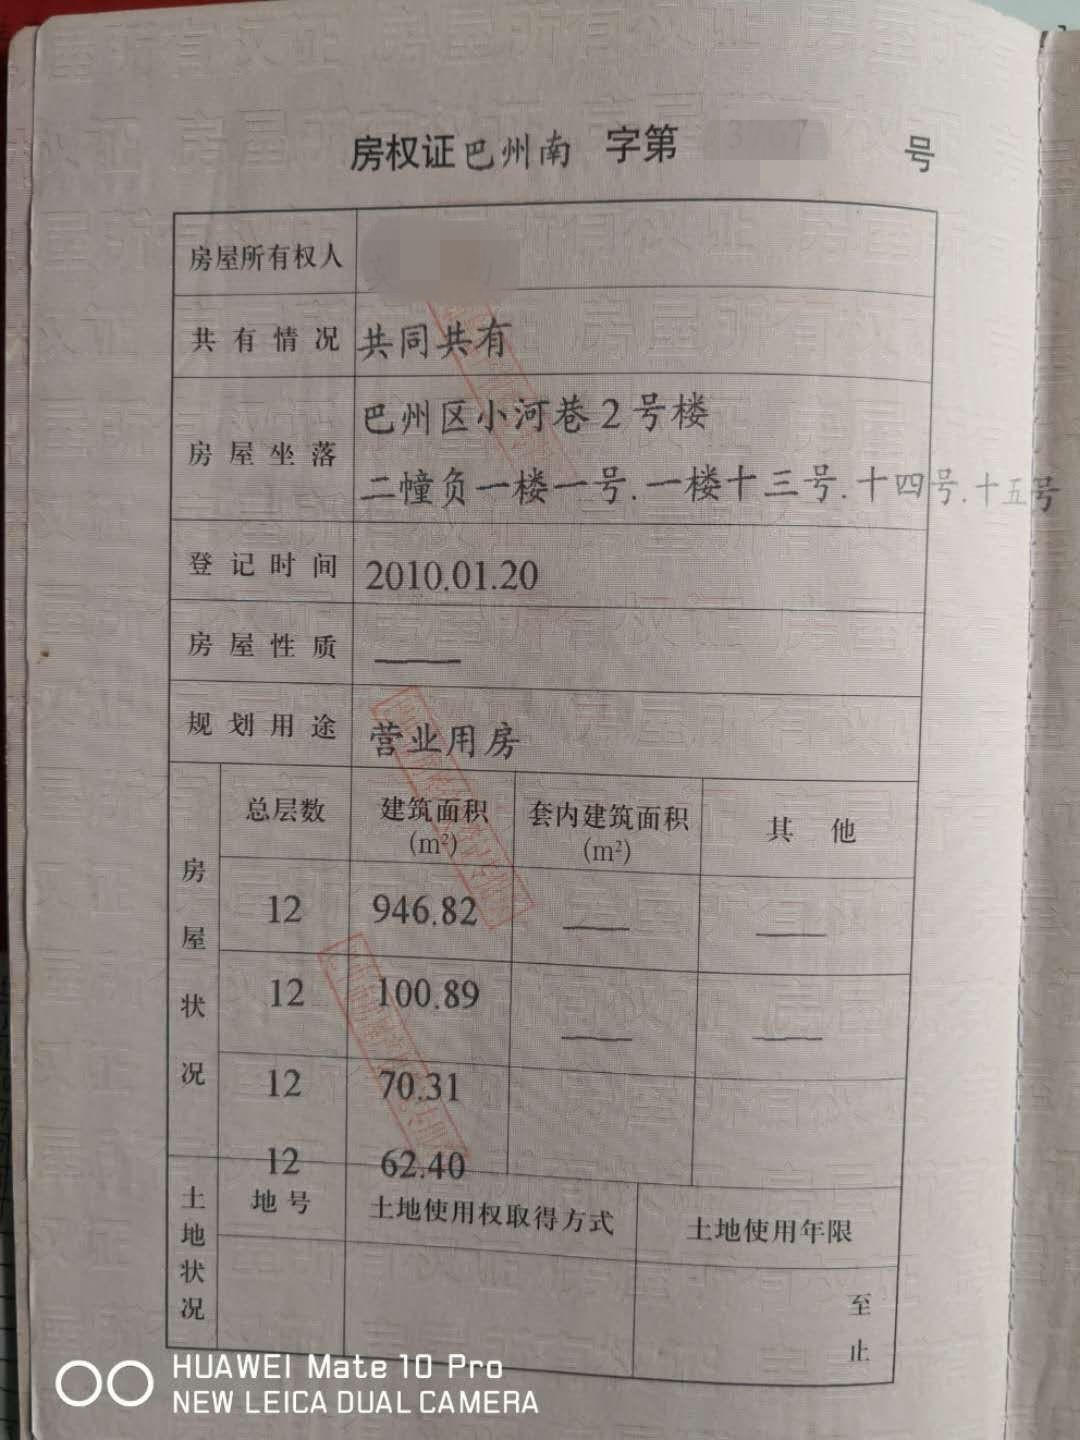 房权证巴州南 字第 号
房屋所有权人
共有情况 共同共有
房屋坐落 巴州区小河巷2号楼
二幢负一楼一号.一楼十三号.十四号.十五号
登记时间 2010.01.20
房屋性质 ——
规划用途 营业用房
房屋状况
总层数 建筑面积(m²) 套内建筑面积(m²) 其他
12 946.82 —— ——
12 100.89 —— ——
12 70.31
12 62.40
土地状况
地号 土地使用权取得方式 土地使用年限
至
止
HUAWEI Mate 10 Pro
NEW LEICA DUAL CAMERA